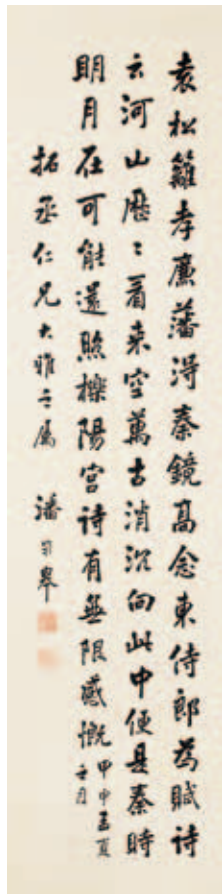 袁松籬孝廉藩得秦鏡高念東侍郎為賦詩
云河山歷〻看来空萬古消沉向此中便是秦時
明月在可能還照櫟陽宫诗有無限感慨甲申孟夏
拓丞仁兄大雅之屬 潘司皋